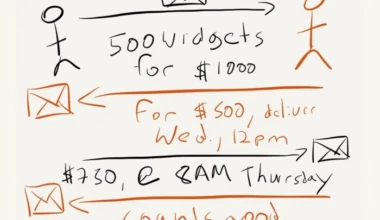 500 widgets
for $1000
For $500, deliver
Wed., 12pm
$730, @ 8AM Thursday
sounds good